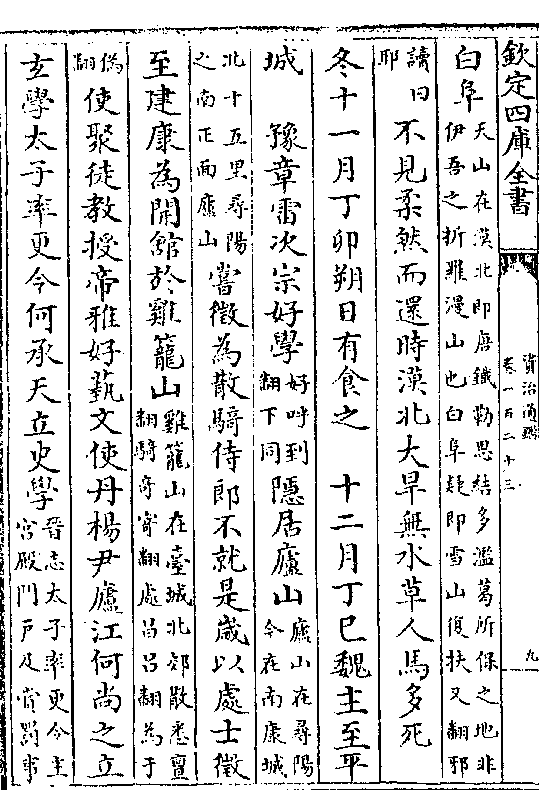 欽定四庫全書
資治通鑑
卷一百二十三
九
白阜天山在漠北即唐鐵勒思結多濫葛所保之地非
伊吾之折羅漫山也白阜疑即雪山復扶又翻邪
讀曰
耶不見柔然而還時漠北大旱無水草人馬多死
冬十一月丁卯朔日有食之 十二月丁巳魏主至平
城 豫章雷次宗好學好呼到
翻下同隱居廬山廬山在尋陽
今在南康城
北十五里尋陽
之南正面廬山嘗徵為散騎侍郎不就是歲以處士徵
至建康為開館於雞籠山雞籠山在臺城北郊散悉亶
翻騎奇寄翻處昌呂翻為于
偽
翻使聚徒教授帝雅好藝文使丹楊尹廬江何尚之立
玄學太子率更令何承天立史學晉志太子率更令主
宮殿門戶及賞罰事